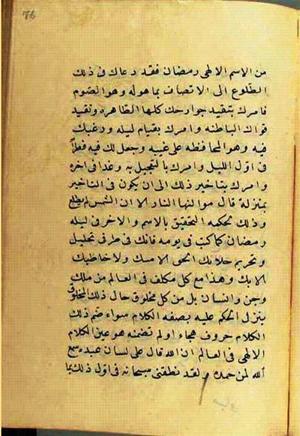 76
من الاسم الالهى رمضان فقد دعاك فى ذلك
الطلوع الى الاتصاف بما هو له وهو الصوم
فامرك بتقييد جوارحك كلها الظاهرة وتقييد
قواك الباطنة وامرك بقيام ليله ورغبك
فيه وهو المحافظة على غيبه وجعل لك فيه فطرا
فى اول الليل وامرك بالتعجيل به وغذا فى اخره
وامرك بتاخير ذلك الى ان يكون فى التاخير
بمنزلة قال هو النهار الا ان الشمس لم تطلع
وذلك لحكمه التحقيق بالاسم والاخر فى ليله
رمضان كما كنت فى يومه فانك فى طرفى تحليل
وتحريم خلا بك الحق الا منك ولا خاطبك
الا بك وهذا مع كل مكلف فى العالم من ملك
وجن وانسان بل من كل مخلوق حال ذلك المخلوق
ينزل الحكم عليه بصفة الكلام سواء ضم ذلك
الكلام حروف هجاء او لم تضمنه هو عين الكلام
الالهى فى العالم ان الله قال على لسان عبده سمع
الله لمن حمده ولقد نطقنى سبحانه فى اول ذلك بما